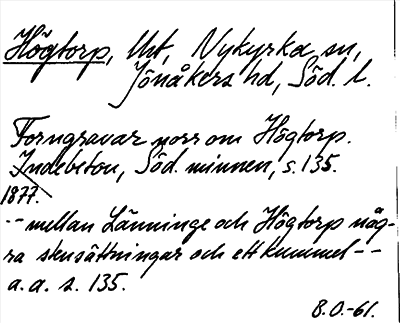 Högtorp, Ust, Nykyrka sn,
Jönåkers hd, Söd. l.
Forngravar norr om Högtorp.
Indebetou, Söd. minnen, s. 135.
1877.
-- mellan Länninge och Högtorp någ-
ra stensättningar och ett kummel --
a. a. s. 135.
B.O.-61.